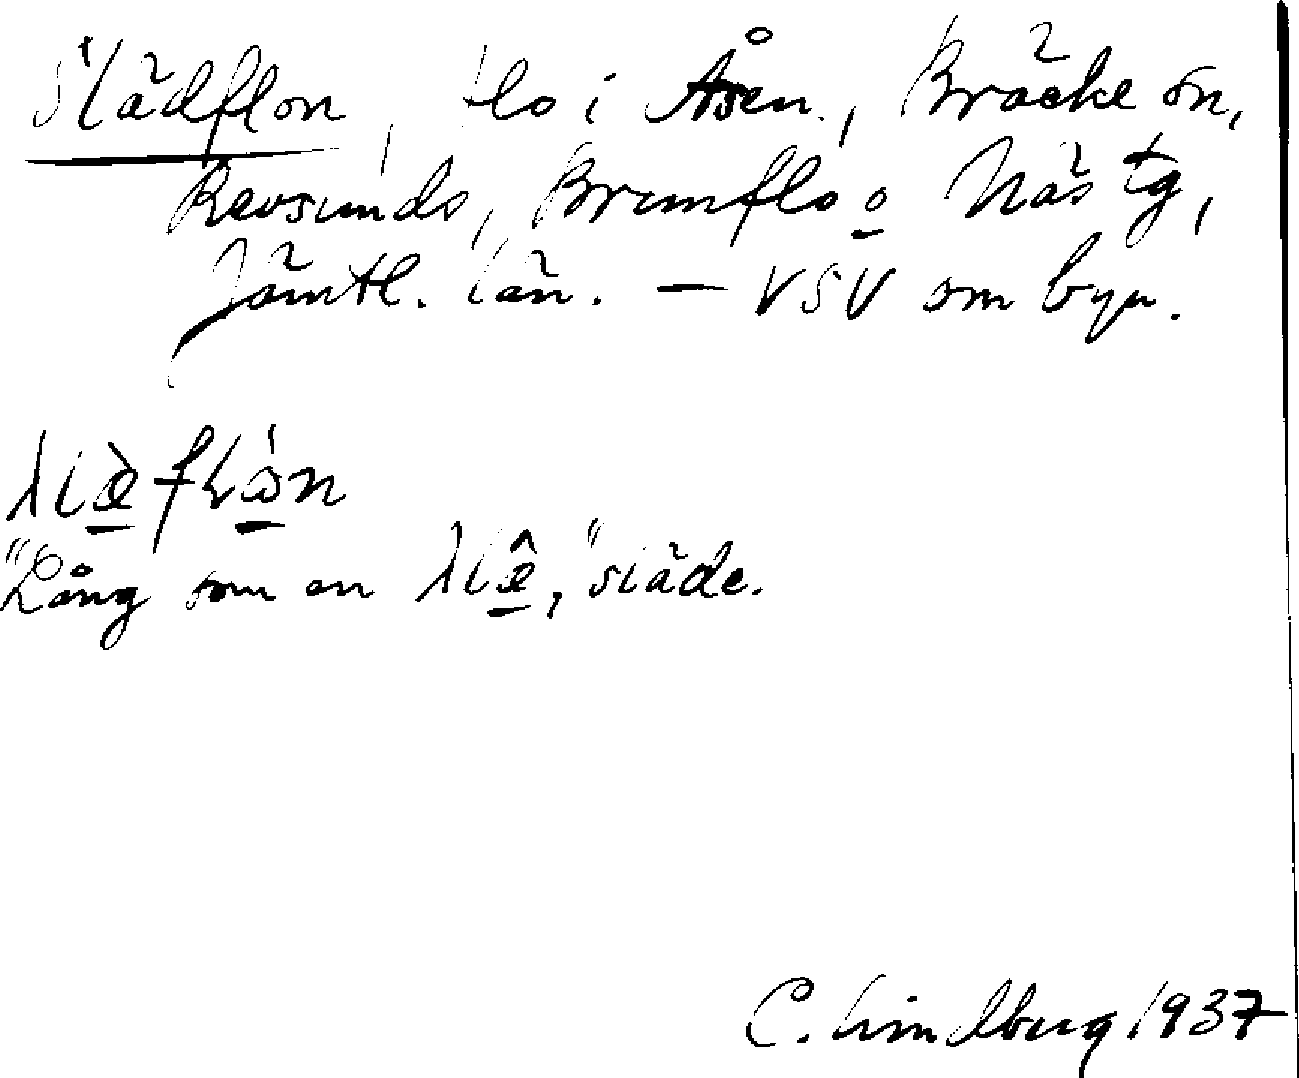 Slädflon, flo i Åsen, Bräcke sn,
Revsunds, Brunflo o Näs tg,
Jämtl. län. — VSV om byn.
"Lång som en slæ̂," släde.
C. Lindberg 1937